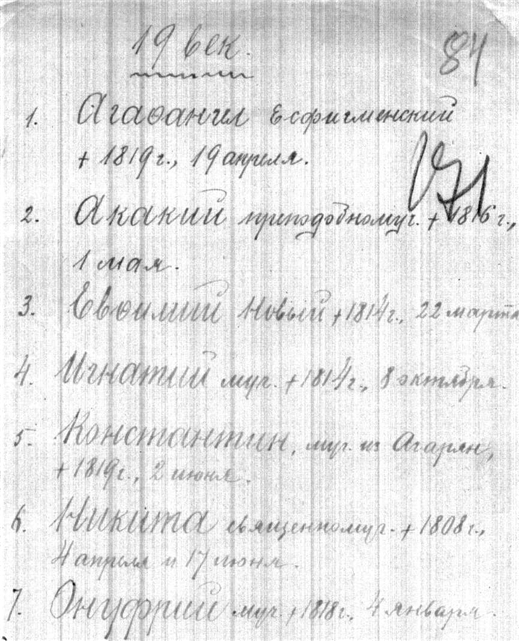 19 век.
84
1. Агаѳангил Есфигменский
+ 1819 г., 19 апреля.
2. Акакий преподобномуч. + 1816 г.,
1 мая.
3. Евѳимий Новый + 1814 г., 22 марта
4. Игнатий муч. + 1814 г., 8 октября.
5. Константин, муч. из Агарян,
+ 1819 г., 2 июня.
6. Никита священномуч. + 1808 г.,
4 апреля и 17 июня.
7. Онуфрий муч. + 1818 г., 4 января.